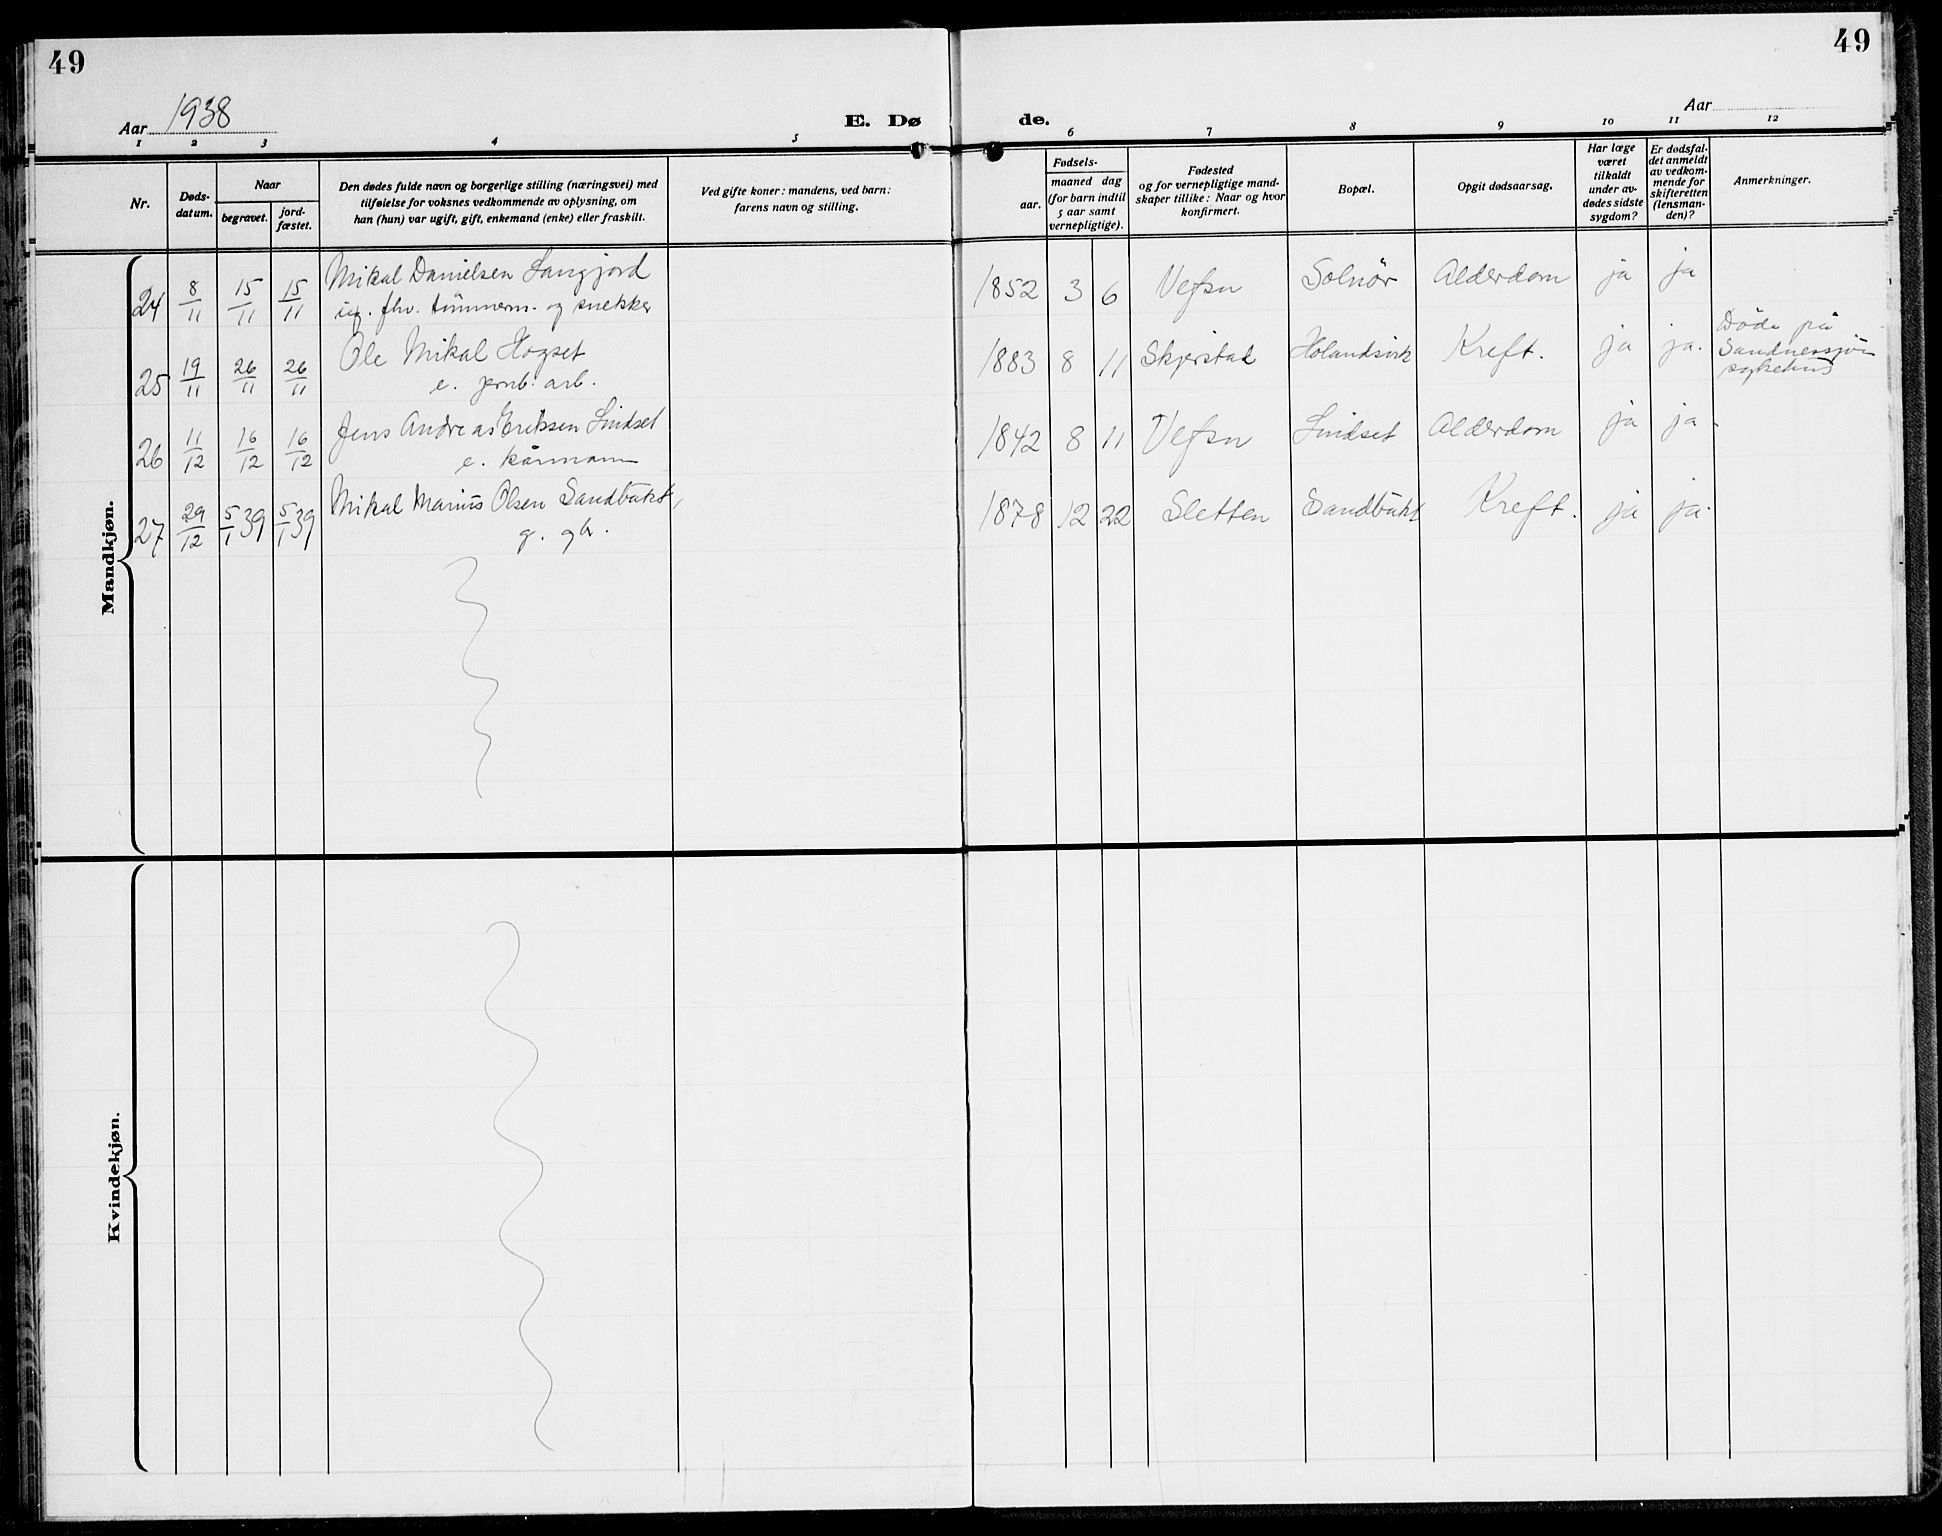 49
49
Aar 1938
E. Dø
de.
Aar
1 2 3 4 5 6 7 8 9 10 11 12
Nr.
Døds-
datum.
Naar
begravet.
jord-
fæstet.
Den dødes fulde navn og borgerlige stilling (næringsvei) med
tilføielse for voksnes vedkommende av oplysning, om
han (hun) var ugift, gift, enkemand (enke) eller fraskilt.
Ved gifte koner: mandens, ved barn:
farens navn og stilling.
Fødsels-
aar.
maaned dag
(for barn indtil
5 aar samt
vernepligtige).
Fødested
og for vernepligtige mand-
skaper tillike: Naar og hvor
konfirmert.
Bopæl.
Opgit dødsaarsag.
Har læge
været
tilkaldt
under av-
dødes sidste
sygdom?
Er dødsfal-
det anmeldt
av vedkom-
mende for
skifteretten
(lensman-
den)?
Anmerkninger.
Mandkjøn.
24 8/11 15/11 15/11 Mikal Danielsen Langjord 1852 3 6 Vefsn Solnör Alderdom ja ja
ug. fhv. tömmerm. og snekker
25 19/11 26/11 26/11 Ole Mikal Hogset 1883 8 11 Skjerstad Holandsvik Kreft. ja ja. Döde på
Sandnessjöen
sykehus
e. jernb. arb.
26 11/12 16/12 16/12 Jens Andreas Eriksen Lindset 1842 8 11 Vefsn Lindset Alderdom ja ja.
e. kårmann
27 29/12 5/1 39 5/1 39 Mikal Marius Olsen Sandbukt, 1878 12 22 Sletten Sandbukt Kreft. ja ja.
g. gb.
Kvindekjøn.